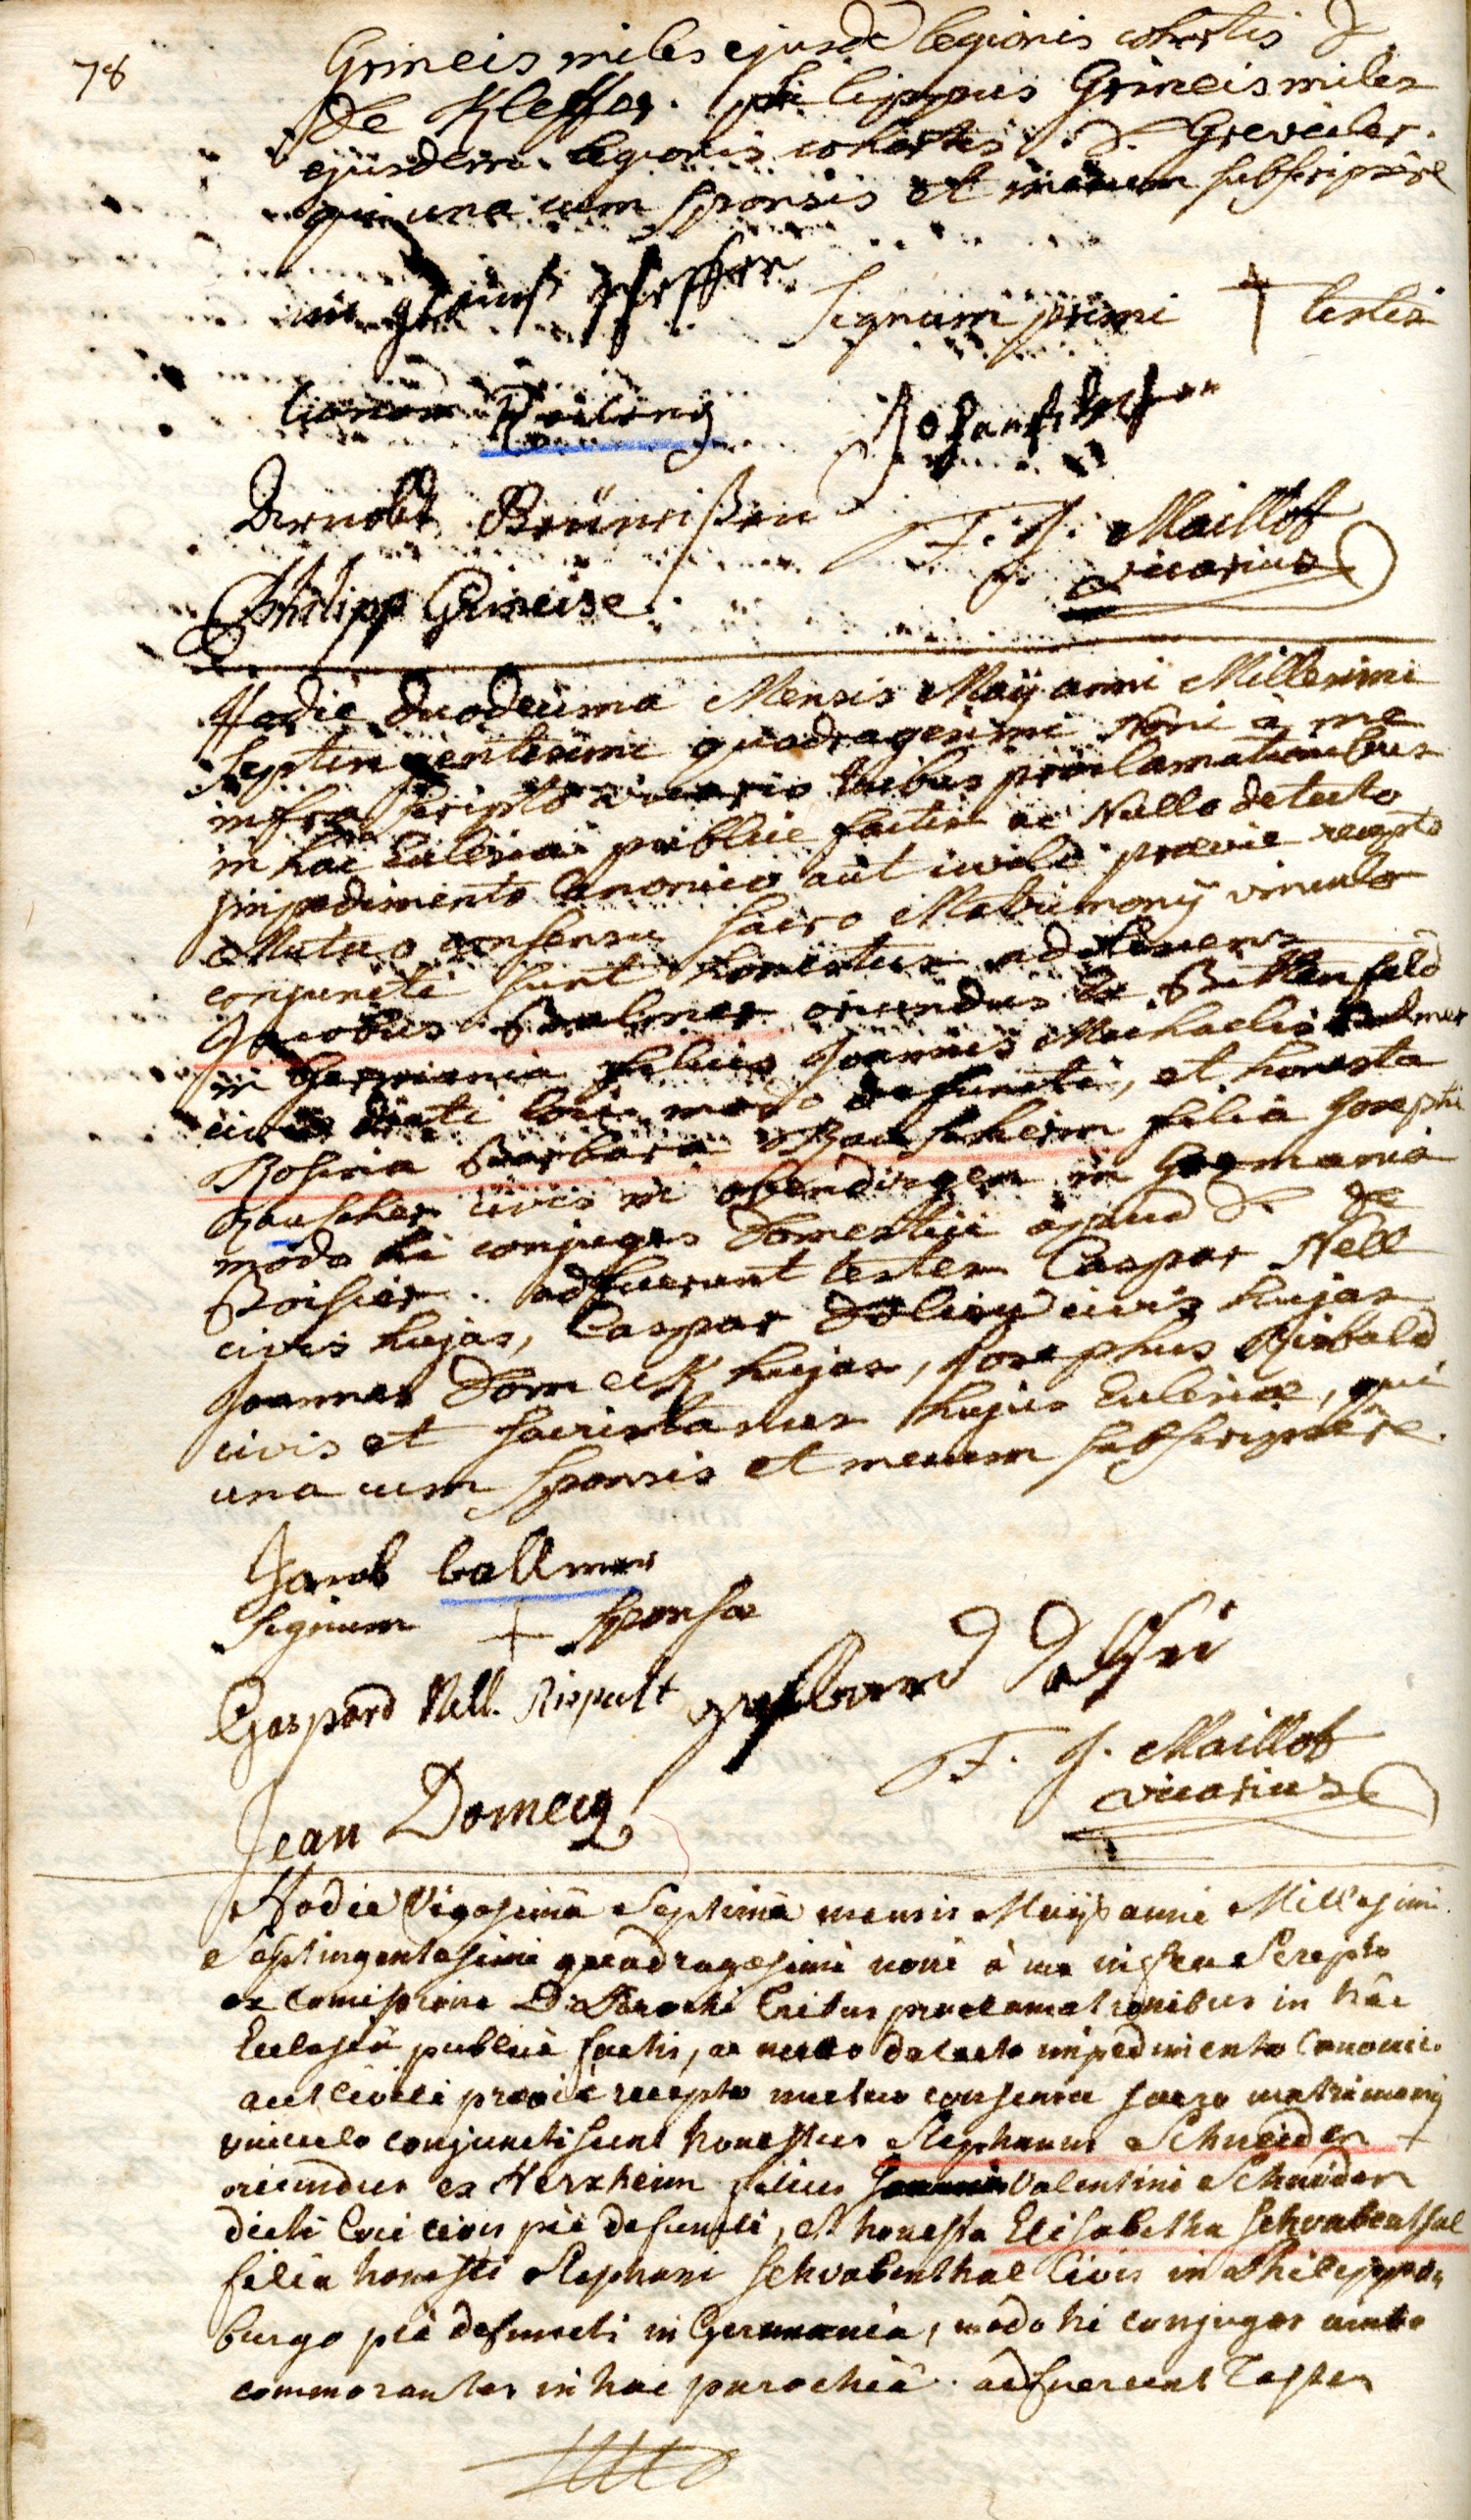 78
Grineis miles ejusdē legionis cohortis D.
de Kleffer. philippus Grineis miles
ejusdem legionis cohortis D. Greveiler.
qui una cum sponsis et mecum subscripsere
signum primi + testis
Arnoldt
F. J. Maillot
vicarius
Philipp Grineise
Hodie duodecima Mensis Maÿ anni Millesimi
septingentesimi quadragesimi Noni à me
infra scripto vicario tribus proclamationibus
in hac Ecclesia publice factis ac Nullo detecto
impedimento Canonico aut civili praevie recepto
Mutuo consensu sacro Matrimonÿ vinculo
conjuncti sunt honestus adolescens
Jacobus Balmer oriundus ex Bittenfeld
in Germania filius Joannis Michaelis Balmer
civis dicti loci modo defuncti, et honesta
Rosina Barbara Rauscherin filia Josephi
Rauscher civis in obendingen in Germania
modo hi conjuges Domestici apud D. de
Boisier. adfuerunt testes Caspar Nell
civis hujas, Caspar civis hujas
Joannes Domeck hujas, Josephus Ribald
civis et sacristanus hujus Ecclesiae, qui
una cum sponsis et mecum subscripsere.
Jacob ballmer
signum + sponsae
Gaspard Nell. Rispalt
F. J. Maillot
vicarius
Jean Domecq
Hodie Vigesimâ Septimâ mensis Maÿ anni Millesimi
Septingentesimi quadragesimi noni à me infra Scripto
ex Comissione D: Parochi tribus proclamationibus in hâc
Ecclesiâ publicè factis, ac nullo detecto impedimento Canonico
aut civili praeviè recepto mutuo consensu sacro matrimonij
vinculo conjuncti sunt honestus Stephanus Schneider +
oriundus ex Herxheim filius Valentini Schneider
dicti loci civis piè defuncti, et honesta Elisabetha Schvabenthal
filia honesti Stephani Schvabenthal Civis in Philippo
burgo piè defuncti in Germania, modo hi conjuges ambo
commorantes in hac parochiâ. adfuerunt Testes